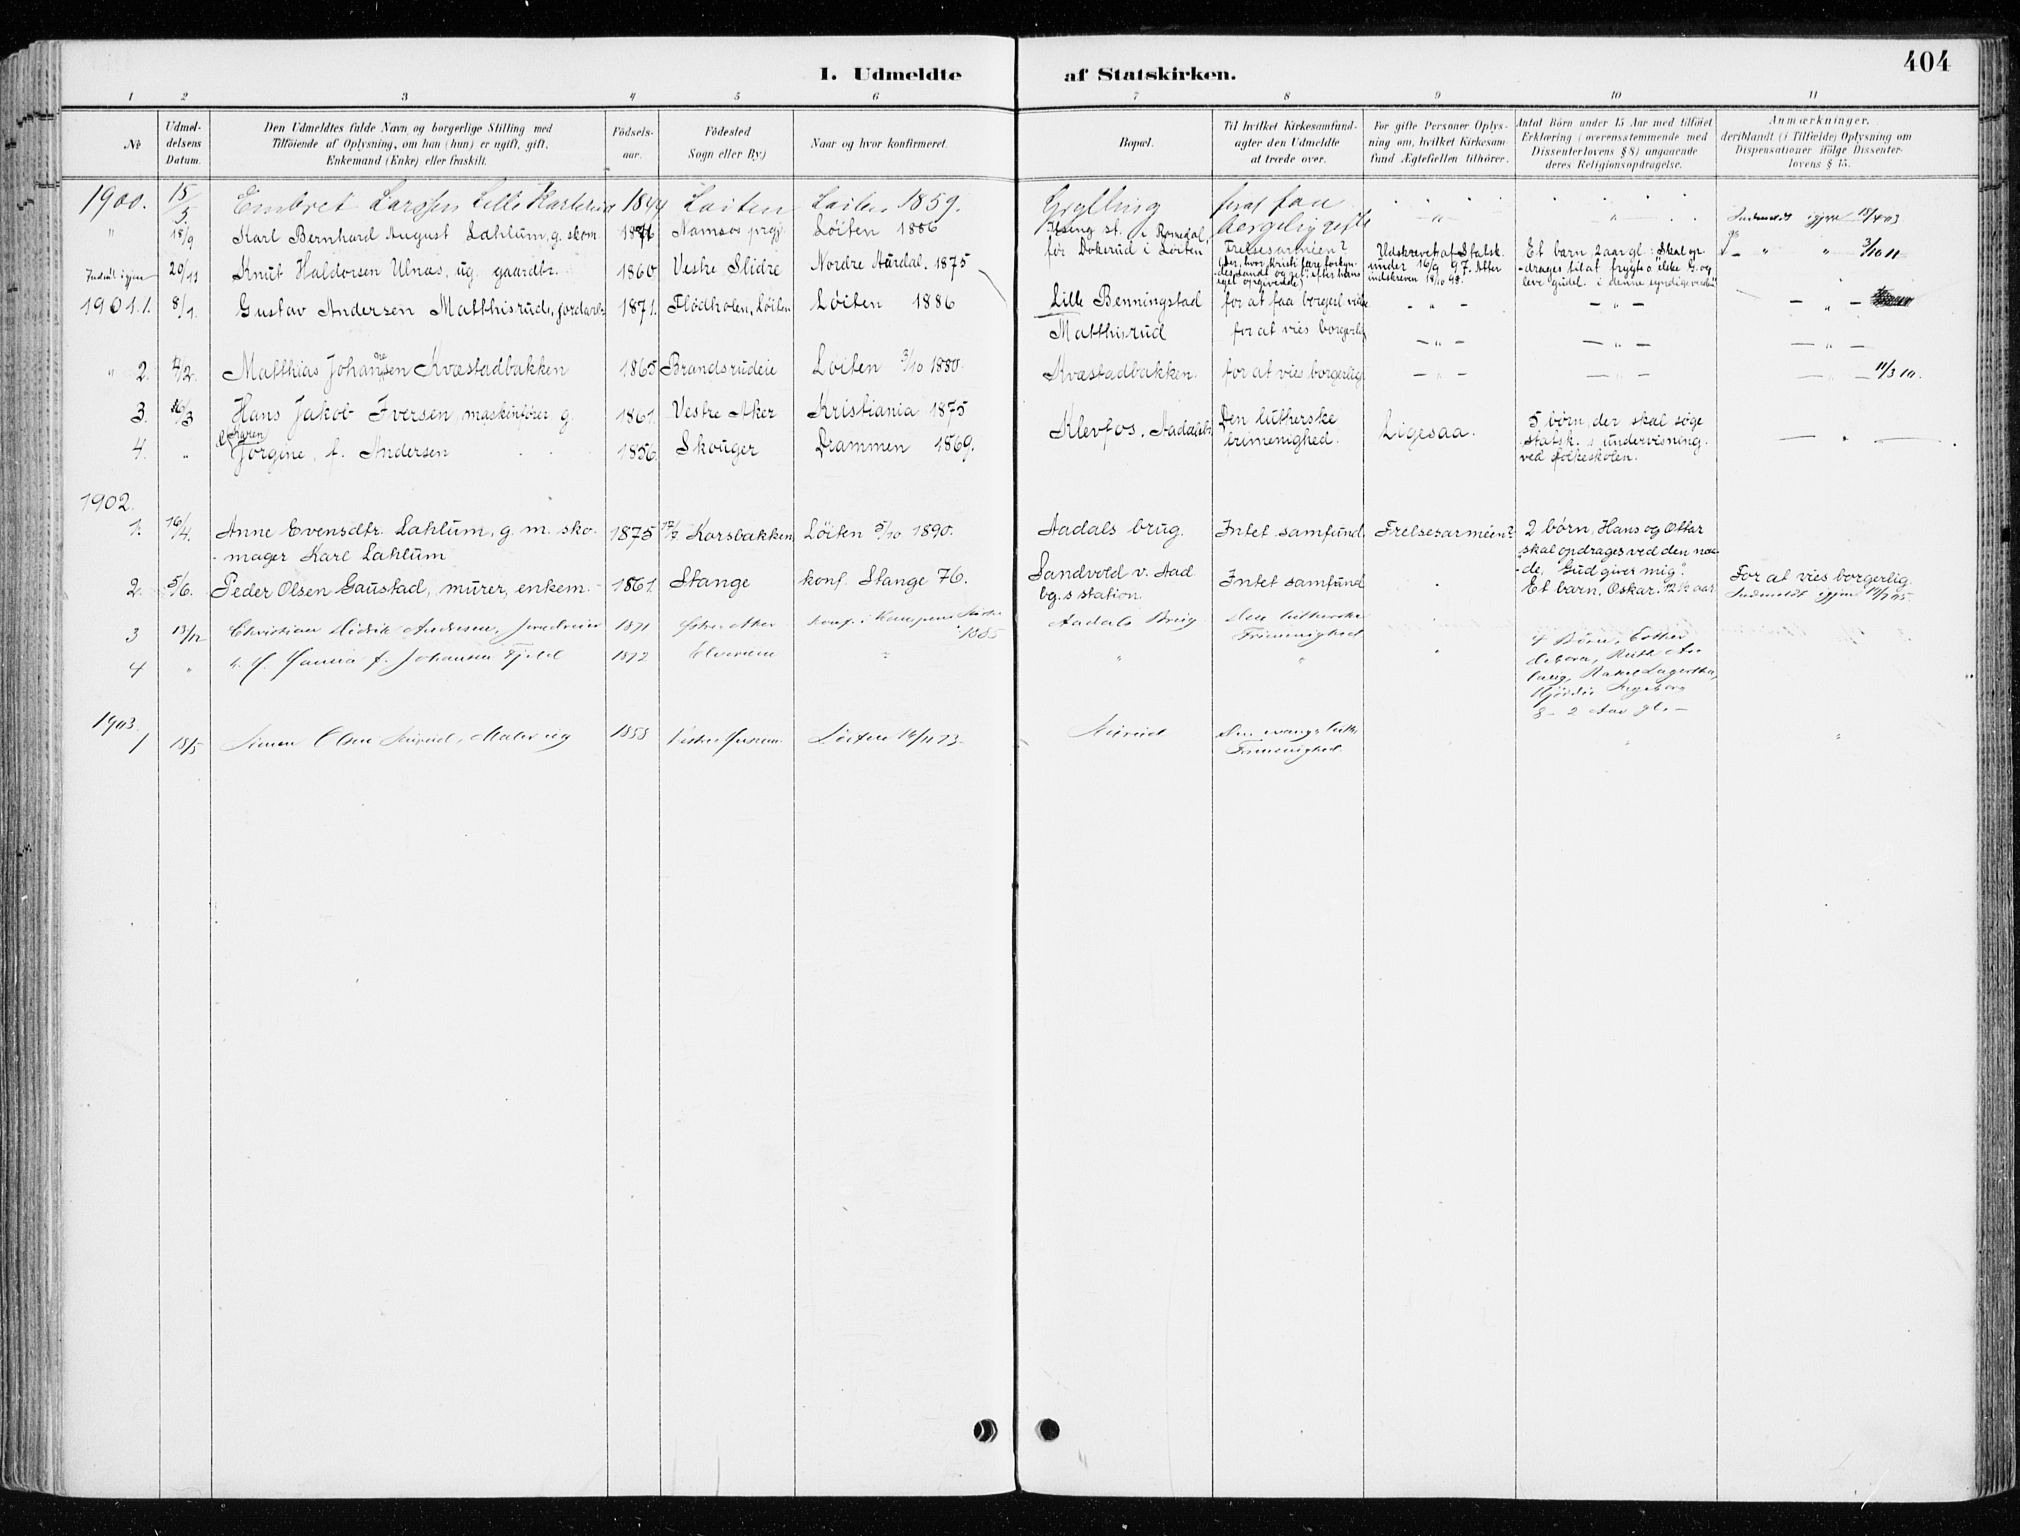 404
I. Udmeldte af Statskirken.
1 2 3 4 5 6 7 8 9 10 11
No
Udmeldelsens Datum.
Den Udmeldtes fulde Navn og borgerlige Stilling med
Tilföiende af Oplysning, om han (hun) er ugift, gift,
Enkemand (Enke) eller fraskilt.
Födsels-
aar.
Födested
Sogn eller By.)
Naar og hvor konfirmeret.
Bopæl.
Til hvilket Kirkesamfund-
agter den Udmeldte
at træde over.
For gifte Personer Oplys-
ning om, hvilket Kirkesam-
fund Ægtefællen tilhörer.
Antal Börn under 15 Aar med tilföiet
Erklæring (overensstemmende med
Dissenterlovens § 8) angaaende
deres Religionsopdragelse.
Anmærkninger.
deriblandt (i Tilfælde) Oplysning om
Dispensationer ifölge Dissenter-
lovens § 15.
1900. 15/5 Embret Larssen Lille 1844 Løiten Løiten 1859.
" 18/9 Karl Bernhard August Lahlum, g. skom. Namsos prgj. Løiten 1886 Ilseng st. i Romedal, før Dokerud i Løiten Frelsesarméen? Indmeldt igjen 18/4 03
20/11 Knut Haldorsen Ulnæs, ug. gaardbr. 1860 Vestre Slidre Nordre Aurdal. 1875 Udskrevet af Statsk. under 16/9 97. Atter indskreven 18/10 98. Et barn 2 aar gl.: Skal op-
-drages til at frygte o "elske G. og
leve gudel. i denne syndige verden" " " 3/10 11
1901. 1. 8/1. Gustav Andersen Matthisrud, jordarb. 1871. Flødholen, Løiten Løiten 1886 Lille Benningstad for at faa borgerl. vielse
Matthisrud for at vies borgerlig
" 2. 4/2. Matthias Johannesen Kvæstadbakken 1865 Brandsrudeie Løiten 3/10 1880. Kvæstadbakken. for at vies borgerligt 11/3 10.
3. 16/3 Hans Jakob Iversen, maskinfører g. 1861. Vestre Aker Kristiania 1875 Klevfos. Aadalsbr. Den lutherske frimenighed. Ligesaa. 5 børn, der skal søge
statsk.s undervisning
ved folkeskolen.
4. " Karen Jørgine, f. Andersen 1856. Skouger Drammen 1869.
1902.
1. 16/4. Anne Evensdtr. Lahlum, g. m. sko-
-mager Karl Lahlum 1875 17/7 Korsbakken, Løiten 5/10 1890. Aadals brug. Intet samfund. Frelsesarméen? 2 børn, Hans og Ottar
skal opdrages ved den naa-
-de, "Gud giver mig".
2. 5/6. Peder Olsen Gaustad, murer, enkem. 1861. Stange konf. Stange 76. Sandvold v. Aad.
bg.s station. Intet samfund Et barn. Oskar. 12½ aar For at vies borgerlig.
Indmeldt igjen
3 13/12 Christian Didrik Andersen, 1871 Østre Aker konf. i Kampens Kirke 1885 Aadals Brug Den lutherske
Frimenighed 4 Børn, Esther
4 " f. Johansen Fjeld 1872 Elverum " " "
8 - 2 Aar gl. -
1903.
1 18/5 Simen Olsen Maler ug 1858 Løiten 73. Den evang. luth.
Frimenighed. " "